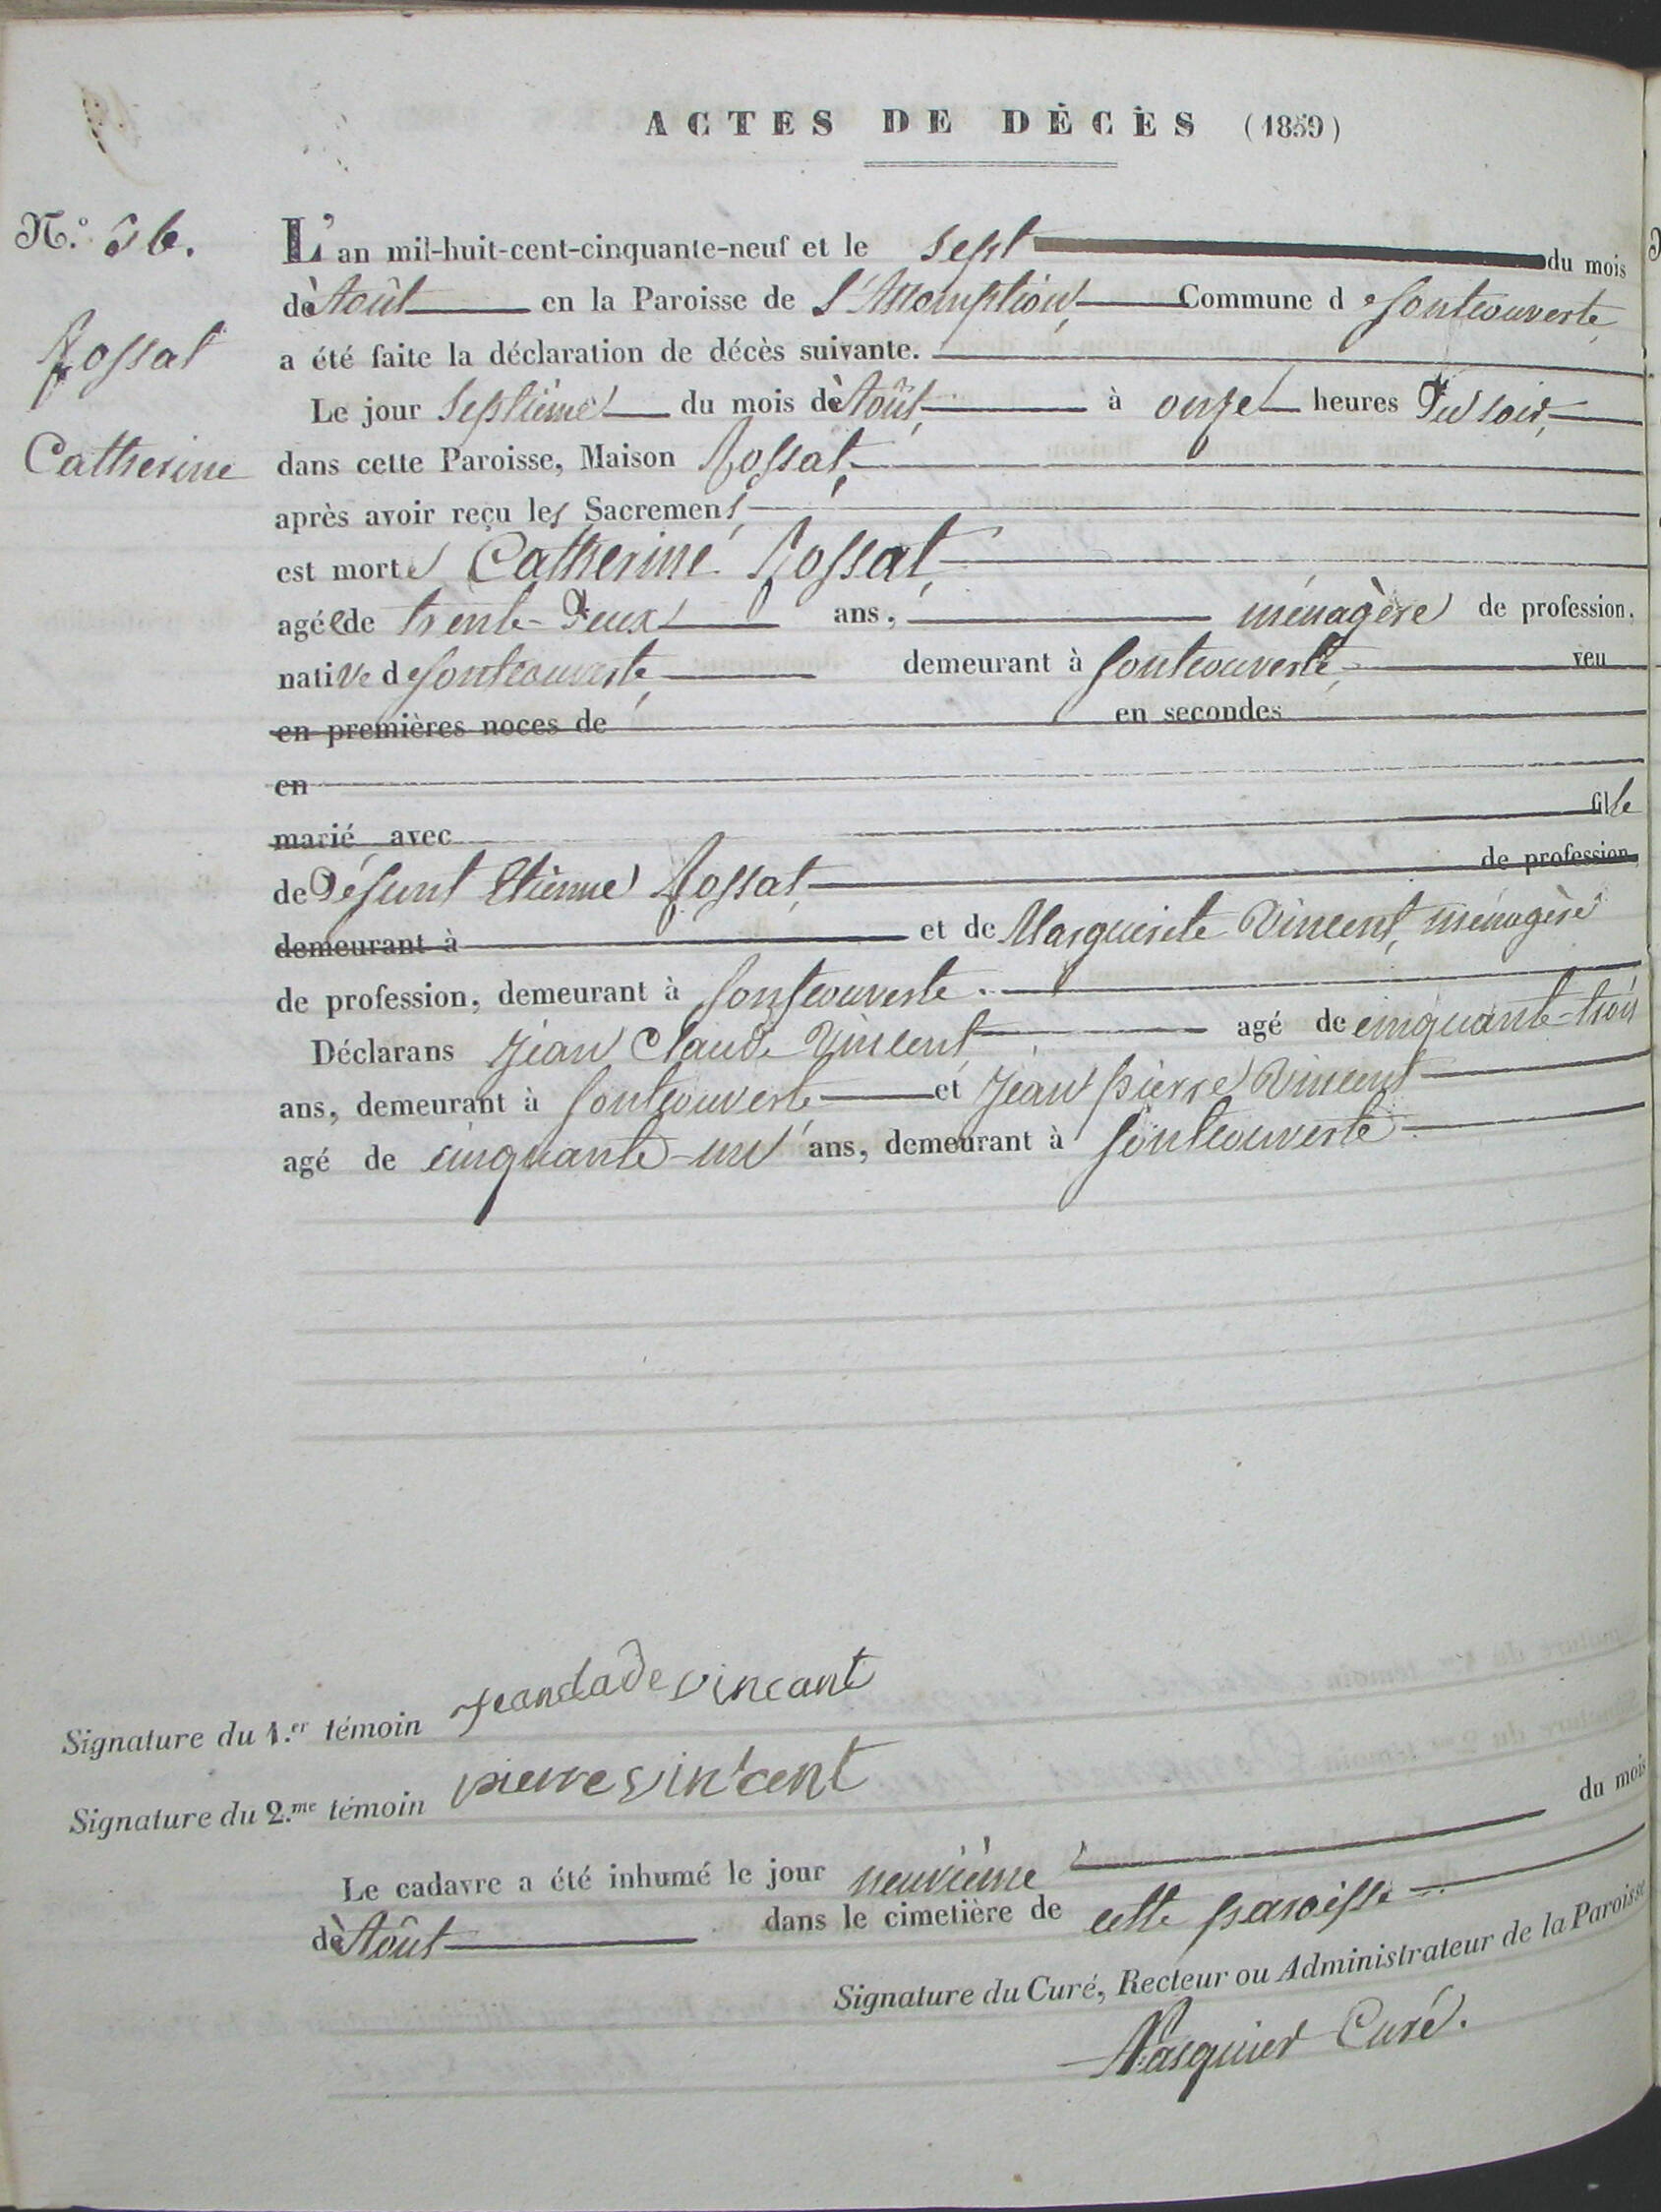 ACTES DE DÉCÈS (1859)
N.º 36.
L'an mil-huit-cent-cinquante-neuf et le sept du mois
d'Août en la Paroisse de l'Assomption, Commune de fontcouverte,
Rossat
a été faite la déclaration de décès suivante.
Le jour septième du mois d'Août, à onze heures Du soir,
Catherine
dans cette Paroisse, Maison Rossat,
après avoir reçu les Sacremens
est morte Catherine Rossat,
agée de trente-Deux ans, ménagère de profession.
native de fontcouverte, demeurant à fontcouverte, veu
en premières noces de en secondes
en
marié avec fille
de Défunt Etienne Rossat, de profession
demeurant à et de Marguerite Vincent, ménagère
de profession, demeurant à fontcouverte.
Déclarans Jean Claude Vincent agé de cinquante-trois
ans, demeurant à fontcouverte et Jean pierre Vincent
agé de cinquante-un ans, demeurant à fontcouverte
Signature du 1.er témoin jeanclade vincant
Signature du 2.me témoin pierre vincent
Le cadavre a été inhumé le jour neuvième du mois
d'Août dans le cimetière de cette paroisse
Signature du Curé, Recteur ou Administrateur de la Paroisse
Curé.